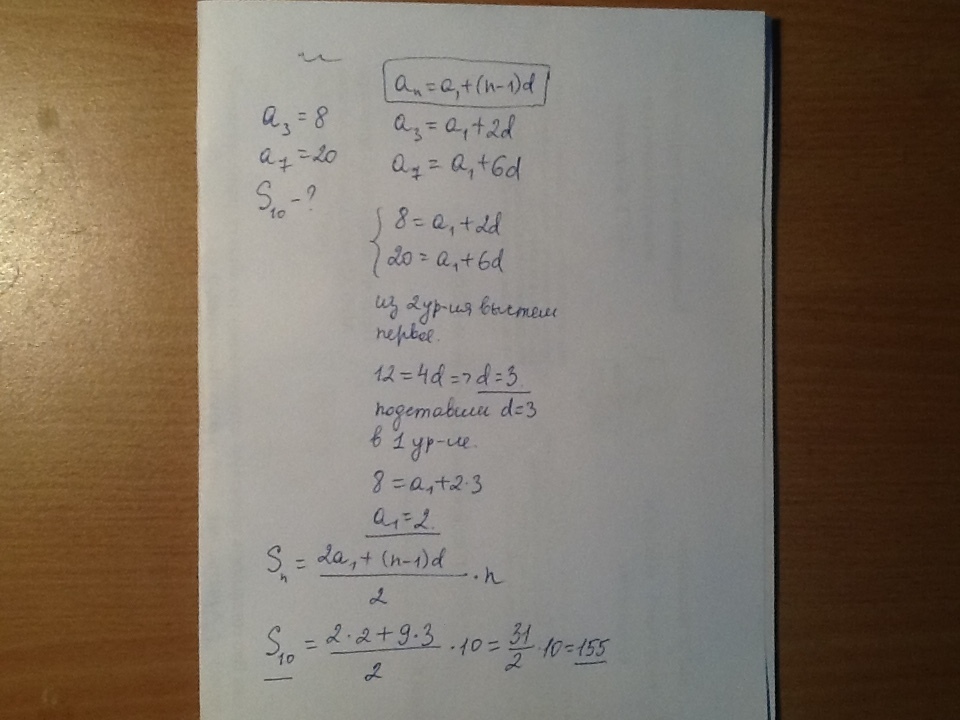 aₙ = a₁ + (n-1)d
a₃ = 8
a₃ = a₁ + 2d
a₇ = 20
a₇ = a₁ + 6d
S₁₀ - ?
{ 8 = a₁ + 2d
20 = a₁ + 6d
из 2 ур-ия вычтем
первое.
12 = 4d => d = 3.
подставим d = 3
в 1 ур-ие.
8 = a₁ + 2·3
a₁ = 2.
Sₙ = (2a₁ + (n-1)d)/2 · n
S₁₀ = (2·2 + 9·3)/2 · 10 = 31/2 · 10 = 155